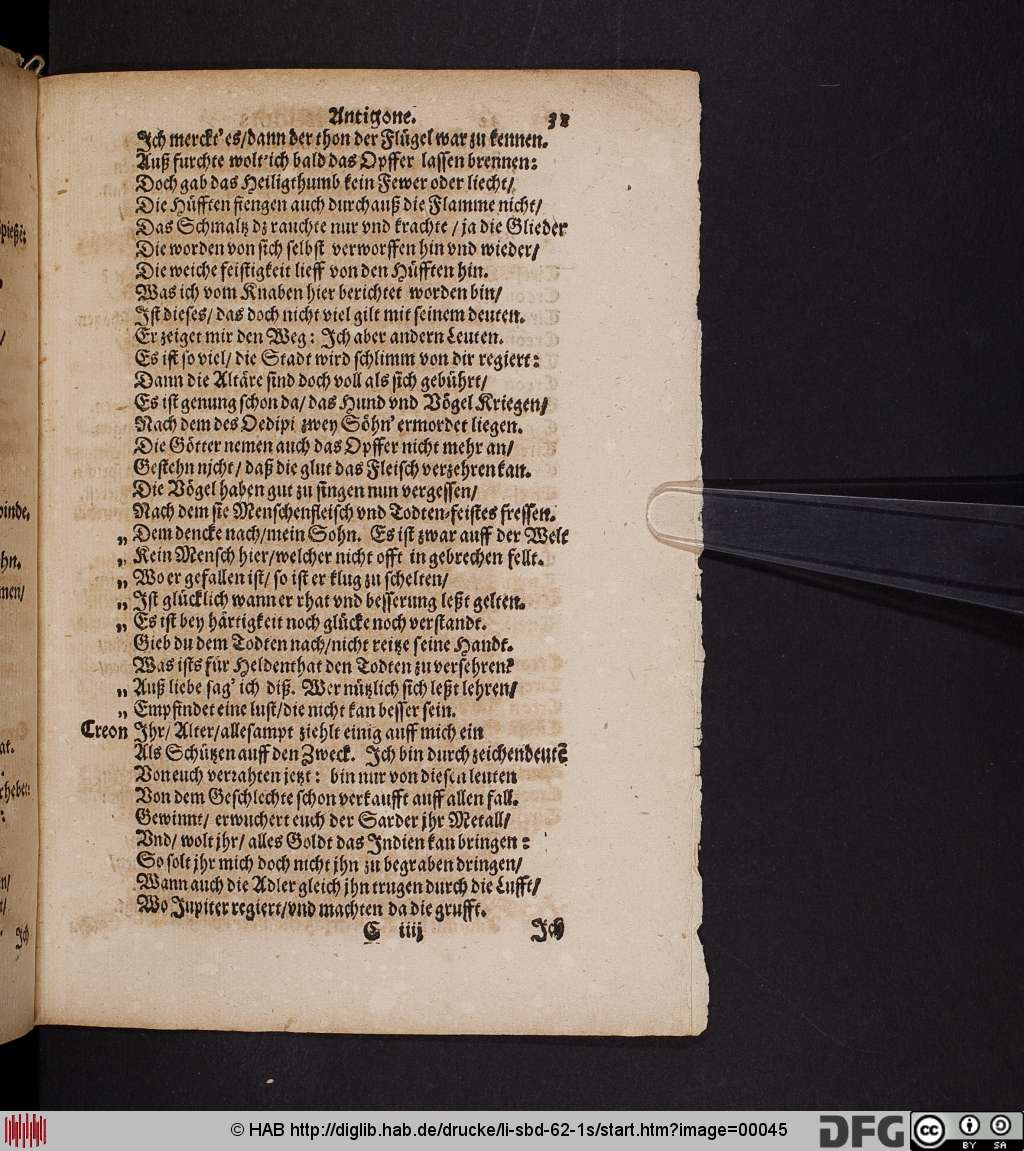 Antigone. 38
Ich merckt' es/dann der thon der Flügel war zu kennen.
Auß furchte wolt' ich bald das Opffer lassen brennen:
Doch gab das Heiligthumb kein Fewer oder liecht/
Die Hüfften fiengen auch durchauß die Flamme nicht/
Das Schmaltz dz rauchte nur vnd krachte / ja die Glieder
Die worden von sich selbst verworffen hin vnd wieder/
Die weiche feistigkeit lieff von den Hüfften hin.
Was ich vom Knaben hier berichtet worden bin/
Ist dieses/ das doch nicht viel gilt mit seinem deuten.
Er zeiget mir den Weg: Ich aber andern Leuten.
Es ist so viel/ die Stadt wird schlimm von dir regiert:
Dann die Altäre sind doch voll als sich gebührt/
Es ist genung schon da/ das Hund vnd Vögel Kriegen/
Nach dem des Oedipi zwey Söhn' ermordet liegen.
Die Götter nemen auch das Opffer nicht mehr an/
Gestehn nicht/ daß die glut das Fleisch verzehren kan.
Die Vögel haben gut zu singen nun vergessen/
Nach dem sie Menschenfleisch vnd Todten-feistes fressen.
„ Dem dencke nach/mein Sohn. Es ist zwar auff der Welt
„ Kein Mensch hier/welcher nicht offt in gebrechen fellt.
„ Wo er gefallen ist/ so ist er klug zu schelten/
„ Ist glücklich wann er rhat vnd besserung leßt gelten.
„ Es ist bey härtigkeit noch glücke noch verstandt.
Gieb du dem Todten nach/nicht reitze seine Handt.
Was ists für Heldenthat den Todten zu versehren?
„ Auß liebe sag' ich diß. Wer nützlich sich leßt lehren/
„ Empfindet eine lust/die nicht kan besser sein.
Creon Ihr/ Alter/allesampt ziehlt einig auff mich ein
Als Schützen auff den Zweck. Ich bin durch zeichendeutē
Von euch verrahten jetzt: bin nur von diesen leuten
Von dem Geschlechte schon verkaufft auff allen fall.
Gewinnt/ erwuchert euch der Sarder jhr Metall/
Vnd/ wolt jhr/ alles Goldt das Indien kan bringen:
So solt jhr mich doch nicht jhn zu begraben dringen/
Wann auch die Adler gleich jhn trugen durch die Lufft/
Wo Jupiter regiert/vnd machten da die grufft.
C iiij Ich
pießt;
/
winde,
ohn.
men/
at.
.
n/
t/
Ich
© HAB http://diglib.hab.de/drucke/li-sbd-62-1s/start.htm?image=00045
DFG
cc
BY SA